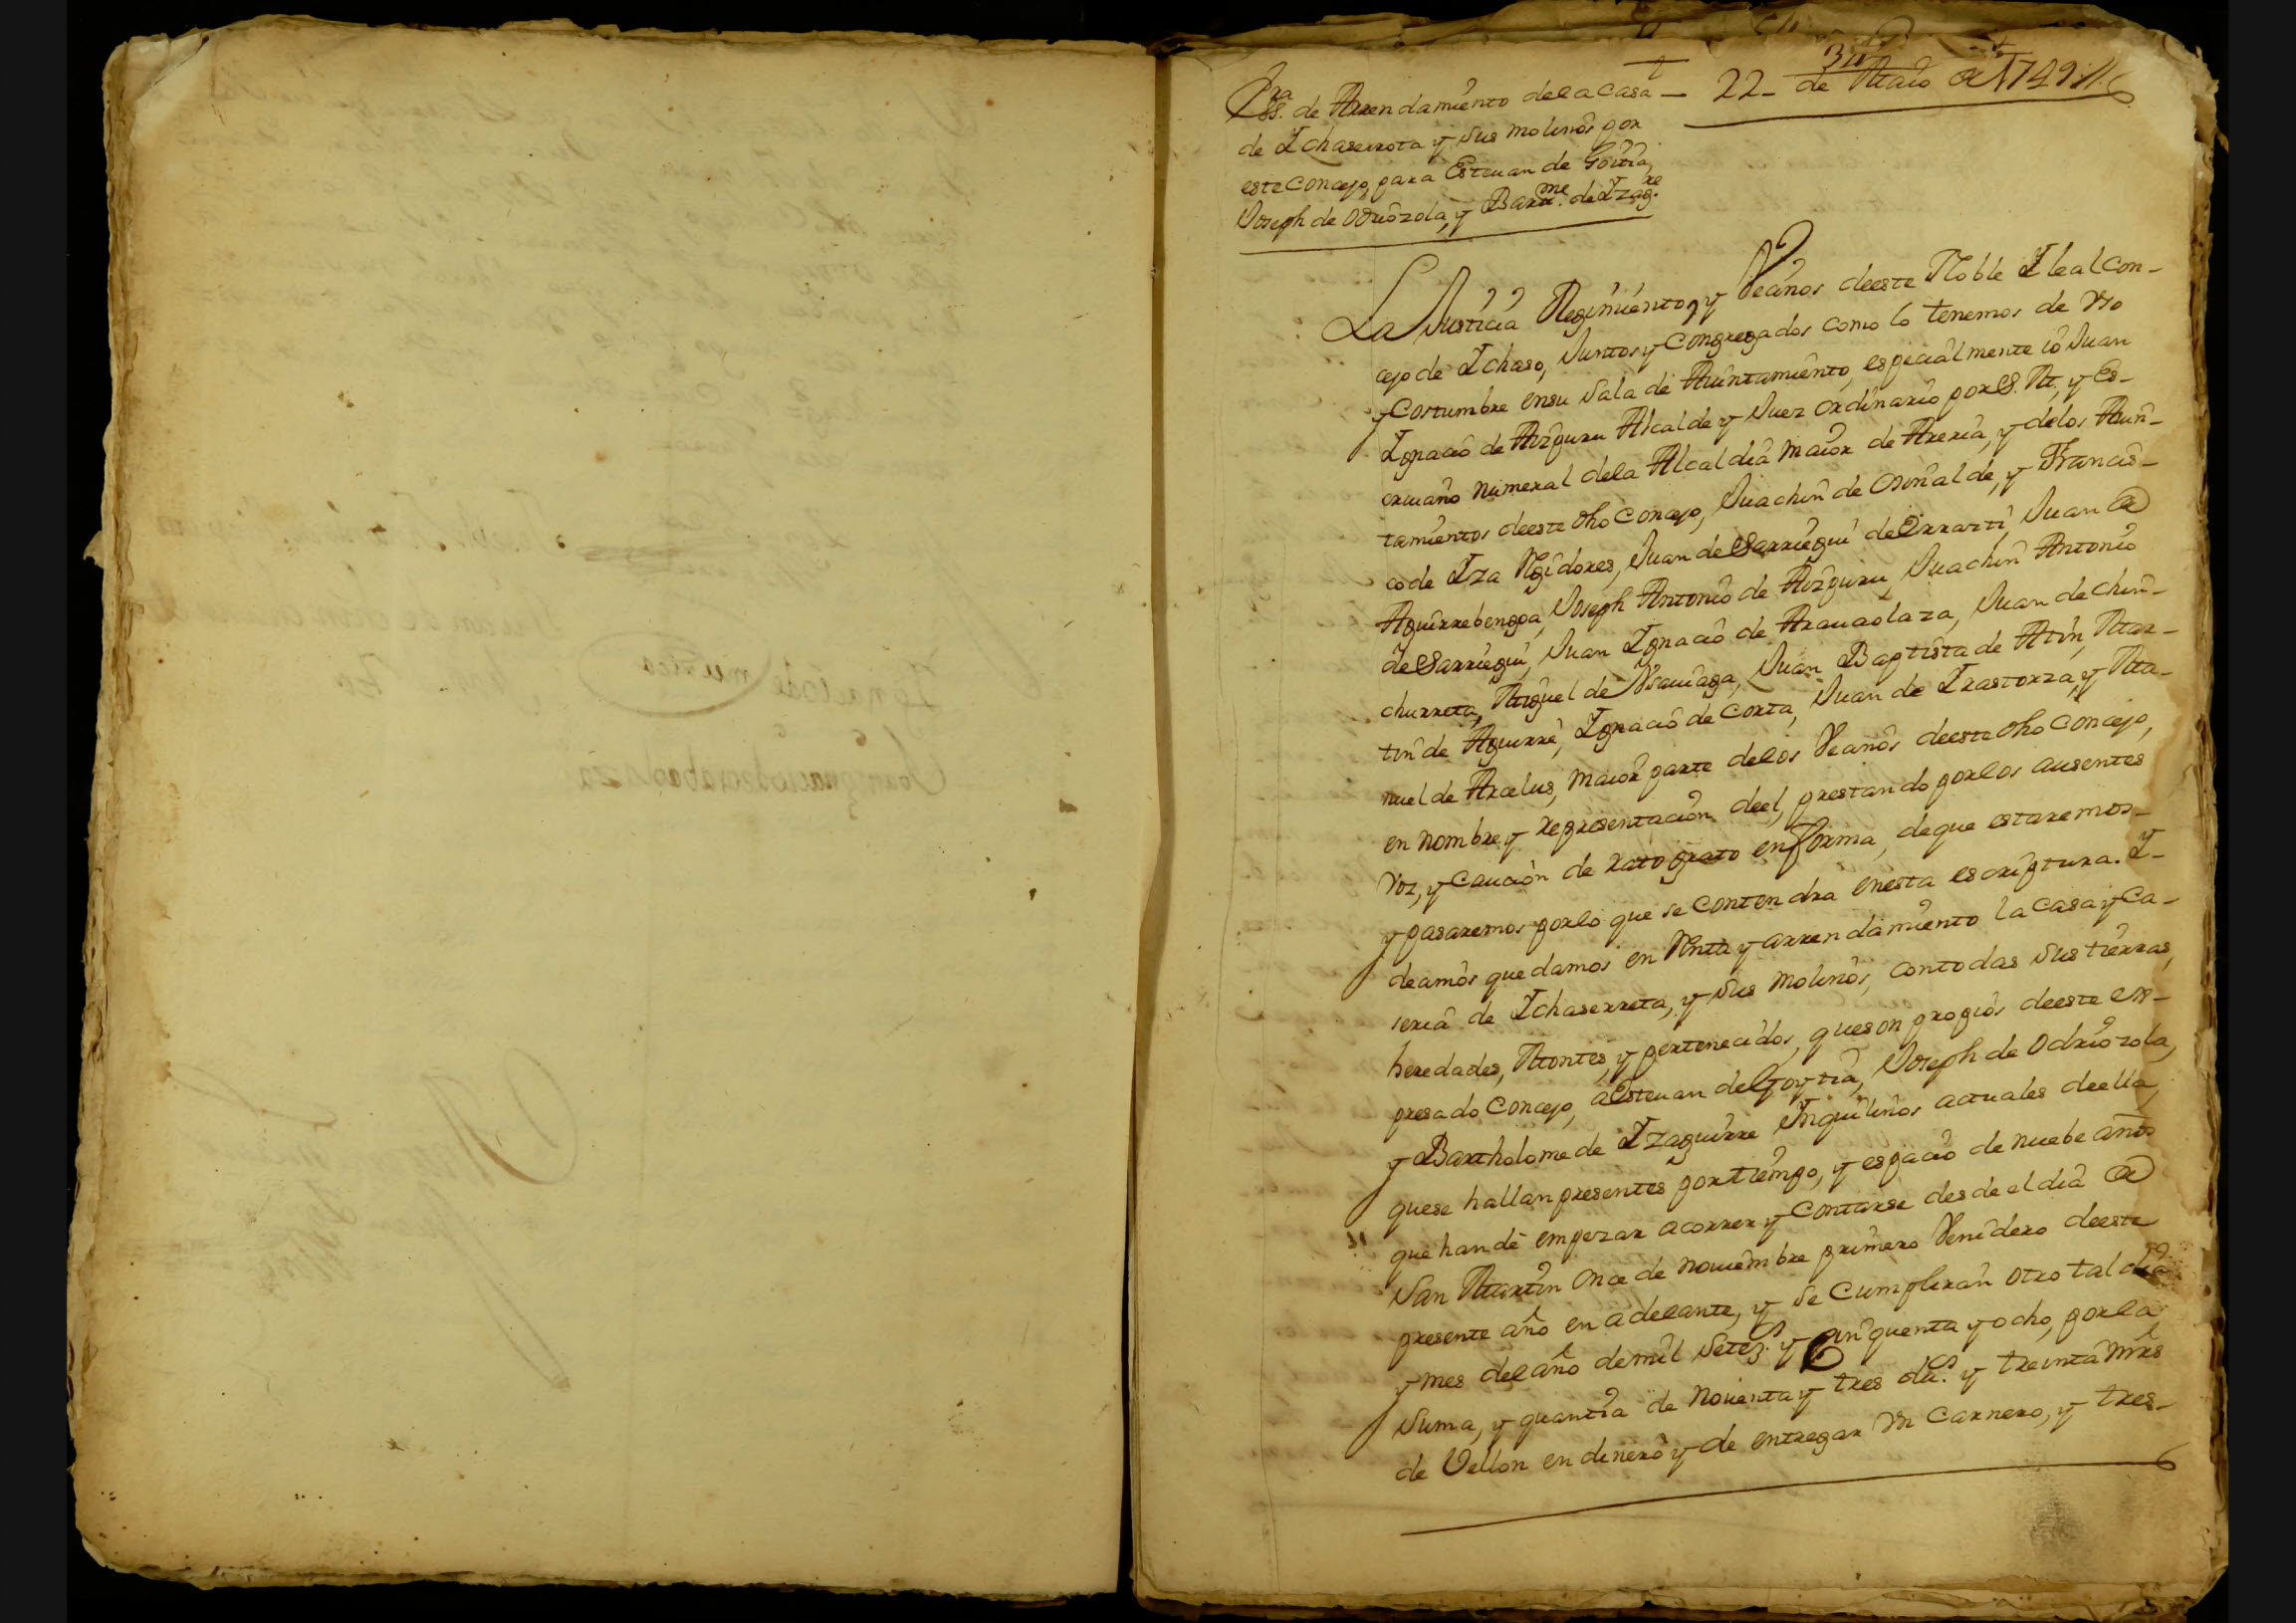 Ess.ra de Arrendamiento dela Casa
de Ichaserrota y sus molinos por
este Concejo, para Esteuan de Goitia,
Joseph de Odriozola, y Barm.e de Izag.re
22 de Maio de 1749
La Justicia Regimiento, y Vecinos deeste Noble Ileal Con-
cejo de Ichaso, Juntos y Congregados como lo tenemos de Vso
y Costumbre ensu Sala de Aiuntamiento, especialmente io Juan
Ignacio de Aizpuru Alcalde y Juez ordinario por S. M., y Es-
criuano Numeral dela Alcaldia maior de Areria, y delos Aiun-
tamientos deeste dho Concejo, Juachin de Osinalde, y Francis-
co de Iza Rexidores, Juan de Sarriegui de Errazti, Juan de
Aguirrebengoa, Joseph Antonio de Aizpuru, Juachin Antonio
de Sarriegui, Juan Ignacio de Arauaolaza, Juan de Chin-
churreta, Miguel de Vsauiaga, Juan Baptista de Atin, Mar-
tin de Aguirre, Ignacio de Corta, Juan de Irastorza, y Ma-
nuel de Arcelus, maior parte delos Vecinos deeste dho Concejo,
en nombre y representacion deel, prestando por los ausentes
Voz, y Caucion de rato grato enforma, deque estaremos
y pasaremos por lo que se Contendra enesta escriptura. Y
deamos que damos en Renta y arrendamiento la Casa y Ca-
seria de Ichaserreta, y sus molinos, contodas sus tierras,
heredades, Montes, y pertenecidos, queson propios deeste ex-
presado Concejo, a Esteuan de Goytia, Joseph de Odriozola,
y Bartholome de Izaguirre Inquilinos actuales deella,
quese hallan presentes por tiempo, y espacio de nuebe años
que han de empezar acorrer y Contarse desde el dia de
San Martin Once de Nouiembre primero Venidero deeste
presente año en adelante, y se Cumpliran otro tal dia
y mes del año demil Setez.s y cinquenta y ocho, por la
Suma, y quantia de Nouenta y tres du.s y treinta mrs
de Vellon en dinero y de entregar Vn Carnero, y tres